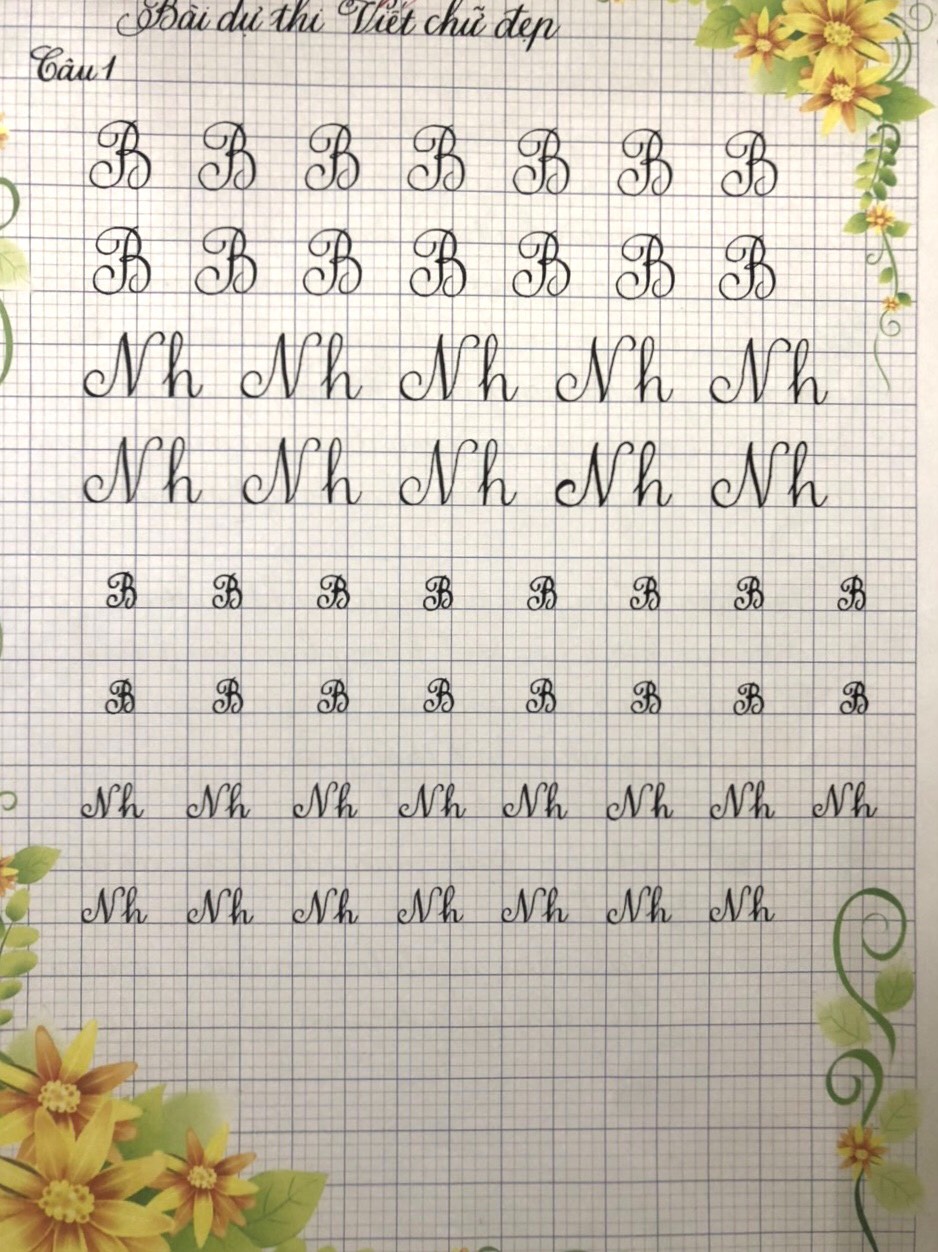 Bài dự thi Viết chữ đẹp
Câu 1
B B B B B B B
B B B B B B B
Nh Nh Nh Nh Nh
Nh Nh Nh Nh Nh
B B B B B B B B
B B B B B B B B
Nh Nh Nh Nh Nh Nh Nh Nh
Nh Nh Nh Nh Nh Nh Nh